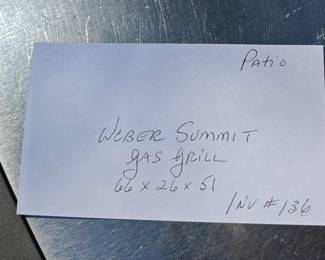 Patio
Weber Summit
gas grill
66 x 26 x 51
Inv # 136